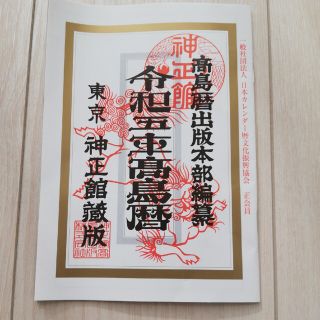 一般社団法人 日本カレンダー暦文化振興協会 正会員
神正館
高島暦出版本部編纂
令和五年高島暦
東京 神正館蔵版